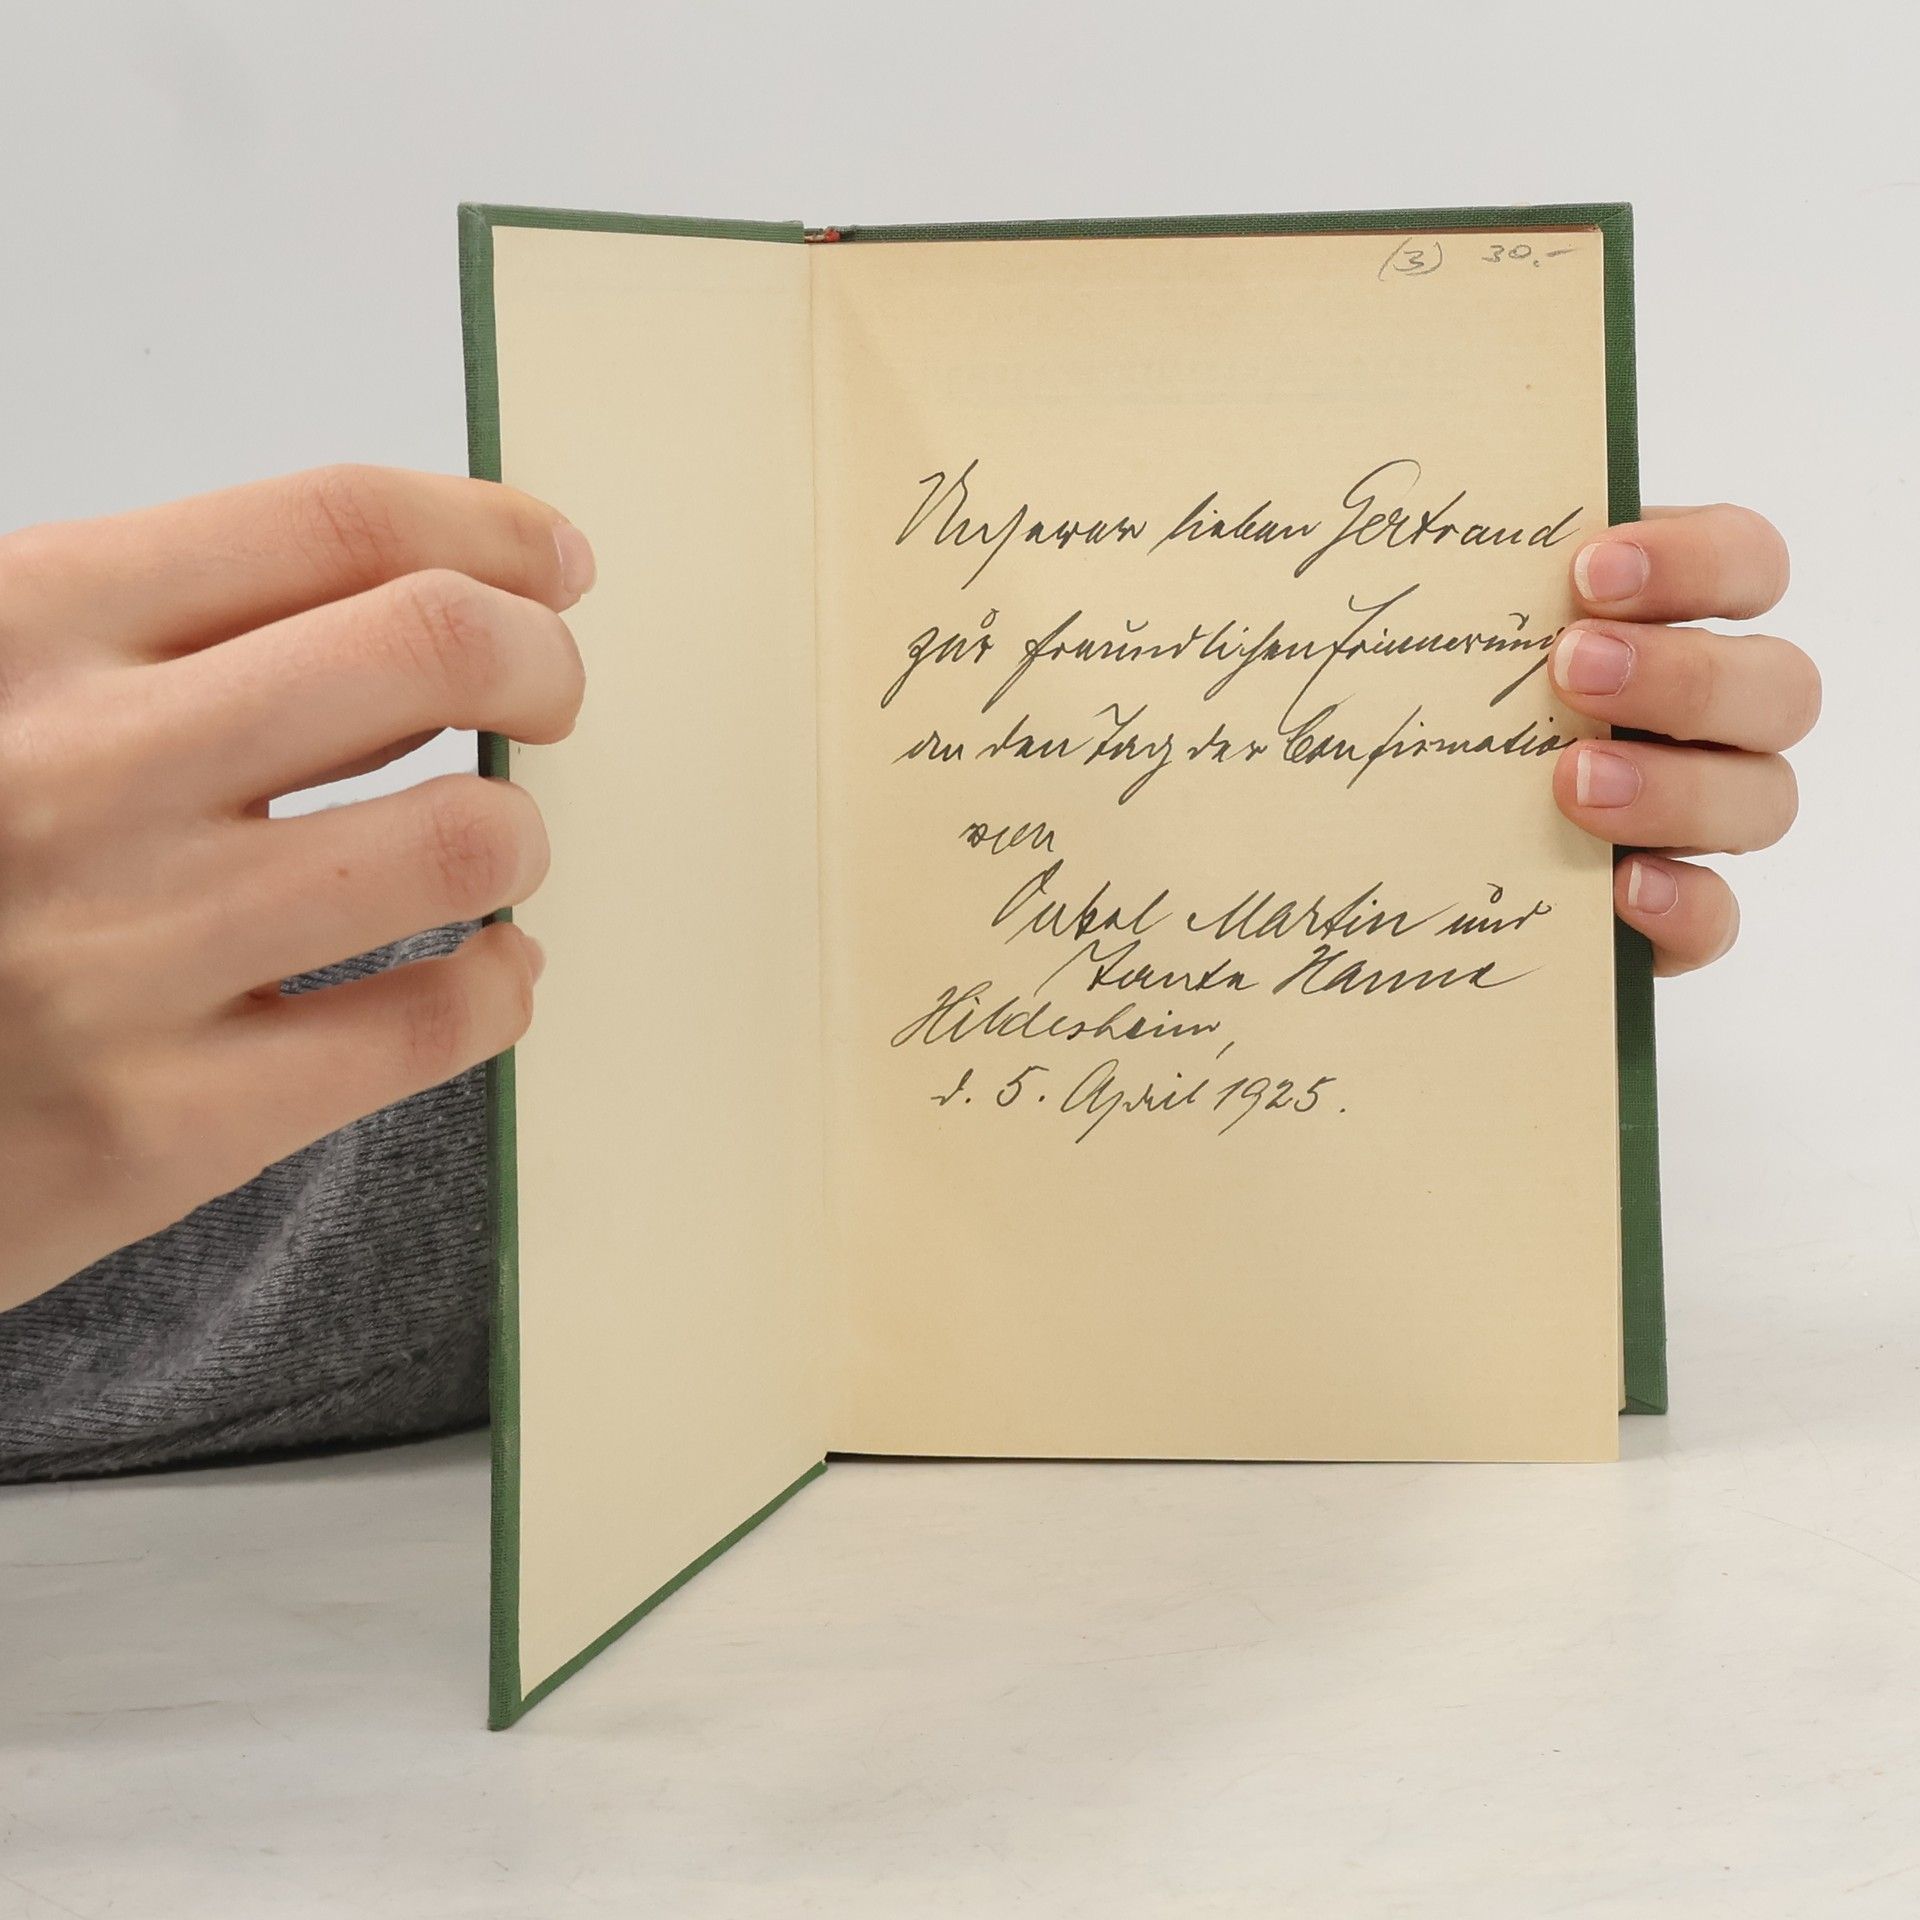 (3) 30.-
Unserer lieben Gertraud
zur freundlichen Erinnerung
an den Tag der Confirmatio
von
Onkel Martin und
Tante Hanna
Hildesheim,
d. 5. April 1925.